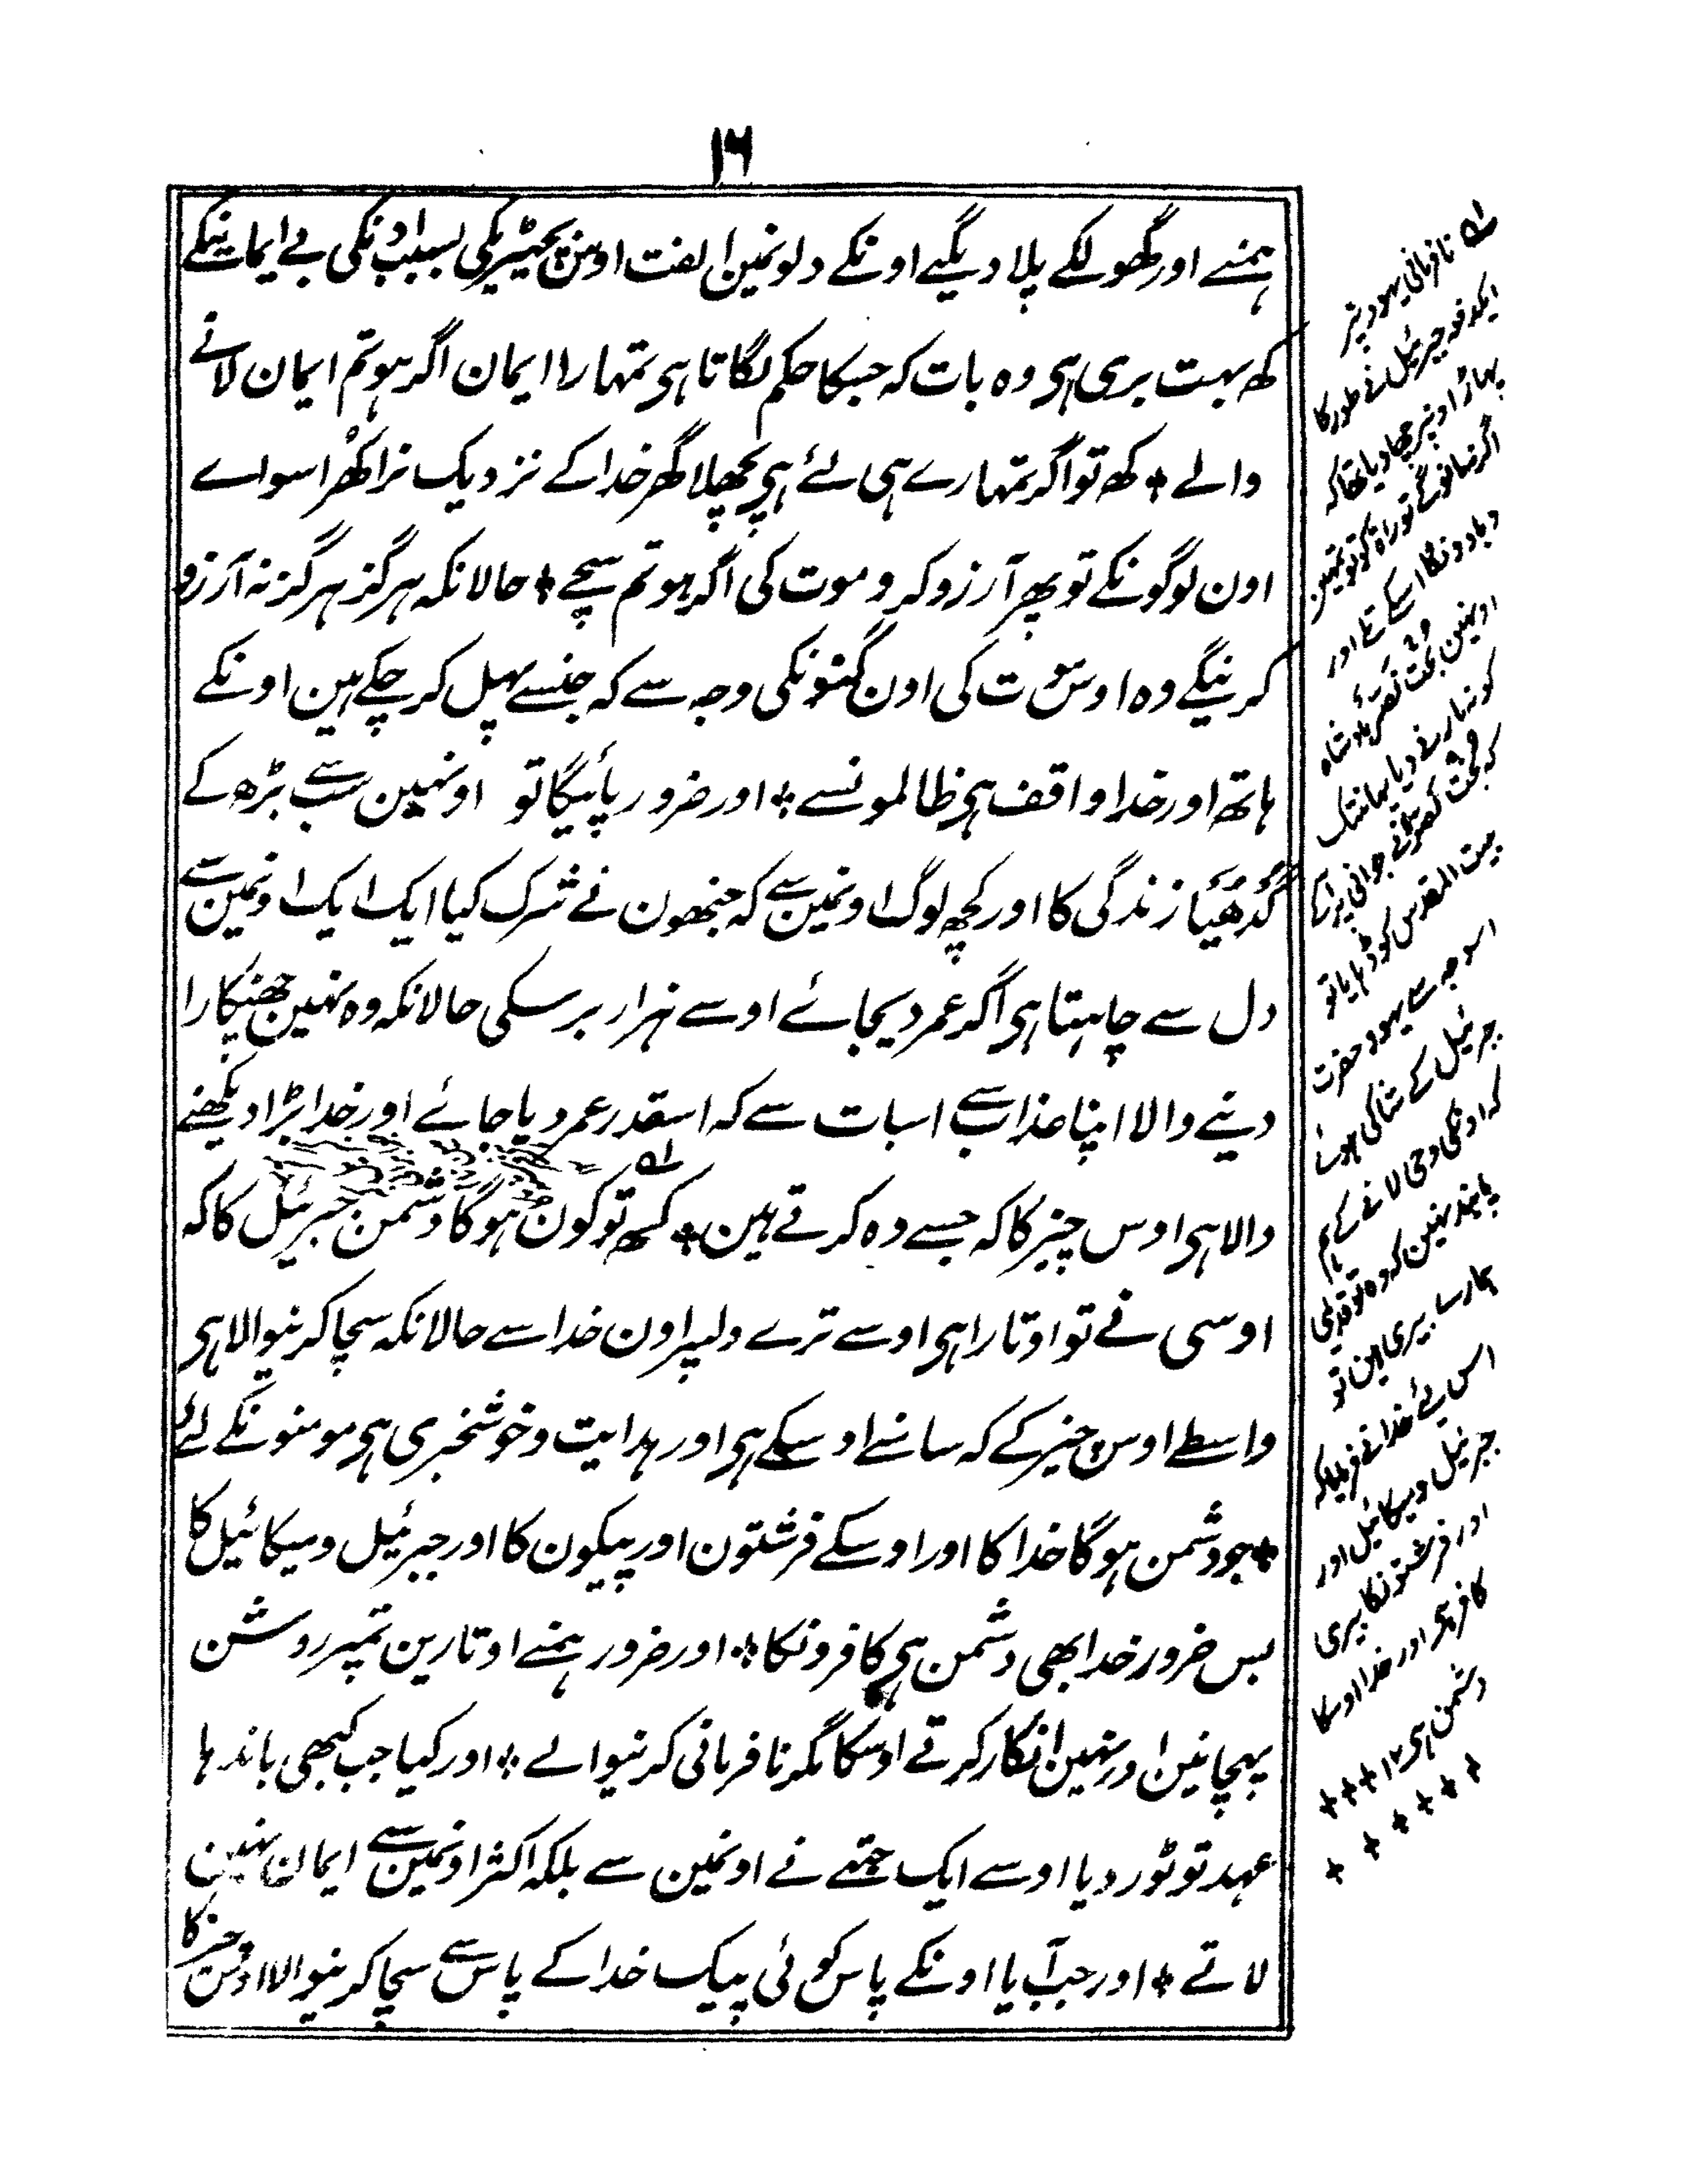 ۱۶
ہمنے اور گھولکے پلا دیگئے اونکے دلونمین الفت اوس بچھیڑیکی بسبب اونکی بے ایمانیکے
کھ بہت بری ہی وہ بات کہ جسکا حکم لگاتا ہی تمہارا ایمان اگر ہو تم ایمان لانے
والے ٭ کھ تو اگر تمہارے ہی لئے ہی پچھلا گھر خدا کے نزدیک نرا کھرا سواے
اون لوگونکے تو پھر آرزو کرو موت کی اگر ہو تم سچے ٭ حالانکہ ہرگز ہرگز نہ آرزو
کرینگے وہ اوس موت کی اون گنہونکی وجہ سے کہ جنسے پہل کر چکے ہین اونکے
ہاتھ اور خدا واقف ہی ظالمونسے ٭ اور ضرور پائیگا تو اونہین سب سے بڑھ کے
گدھیَا زندگی کا اور کچھ لوگ اونمین سے کہ جنھون نے شرک کیا ایک ایک اونمین سے
دل سے چاہتا ہی اگر عمر دیجائے اوسے ہزار برسکی حالانکہ وہ نہین چھٹکارا
دینے والا اپنا عذاب سے اسبات سے کہ اسقدر عمر دیا جائے اور خدا بڑا دیکھنے
والا ہی اوس چیز کا کہ جسے وہ کرتے ہین ٭ کھ تو کون ہوگا دشمن جبرئیل کا کہ
اوسی نے تو اوتارا ہی اوسے ترے دلپر اون خدا سے حالانکہ سچا کرنیوالا ہی
واسطے اوس چیز کے کہ سامنے اوسکے ہی اور ہدایت و خوشخبری ہی مومنونکے لئے
٭ جو دشمن ہوگا خدا کا اور اوسکے فرشتون اور پیکون کا اور جبرئیل و میکائیل کا
بس ضرور خدا بھی دشمن ہی کافرونکا ٭ اور ضرور ہمنے اوتارین تمپر روشن
پہچانین اور نہین انکار کرتے اوسکا مگر نافرمانی کرنیوالے ٭ اور کیا جب کبھی باندہا
عہد تو توڑ دیا اوسے ایک جتھے نے اونمین سے بلکہ اکثر اونمین سے ایمان نہین
لاتے ٭ اور جب آیا اونکے پاس کوئی پیک خدا کے پاس سے سچا کرنیوالا اوس چیز کا
نافرمانی یہود پر
ایکدفعہ جبرئیل نے طور کا
پہاڑ اونپر جھا دیا تھا کہ
اگر نمانوگے توراۃ کو تو تمہین
دبا دونگا اسکے تلے اور
اونہین بخت نصر بادشاہ
کو نمارنے دیا یہانتک
بیت المقدس کو ڈہایا تو
اسوجہ سے یہود حضرت
جبرئیل کے شاکی ہوئے
کہ اونکی وحی لانے کے ہم
پابند نہین کہ وہ تو قدیمی
ہمارے بیری ہین تو
اس لیے خدا نے فرمایا کہ
جبرئیل و میکائیل اور
اور فرشتونکا بیری
کافر ہی اور خدا اوسکا
دشمن ہی ۱۲ + + + +
+ + + + +